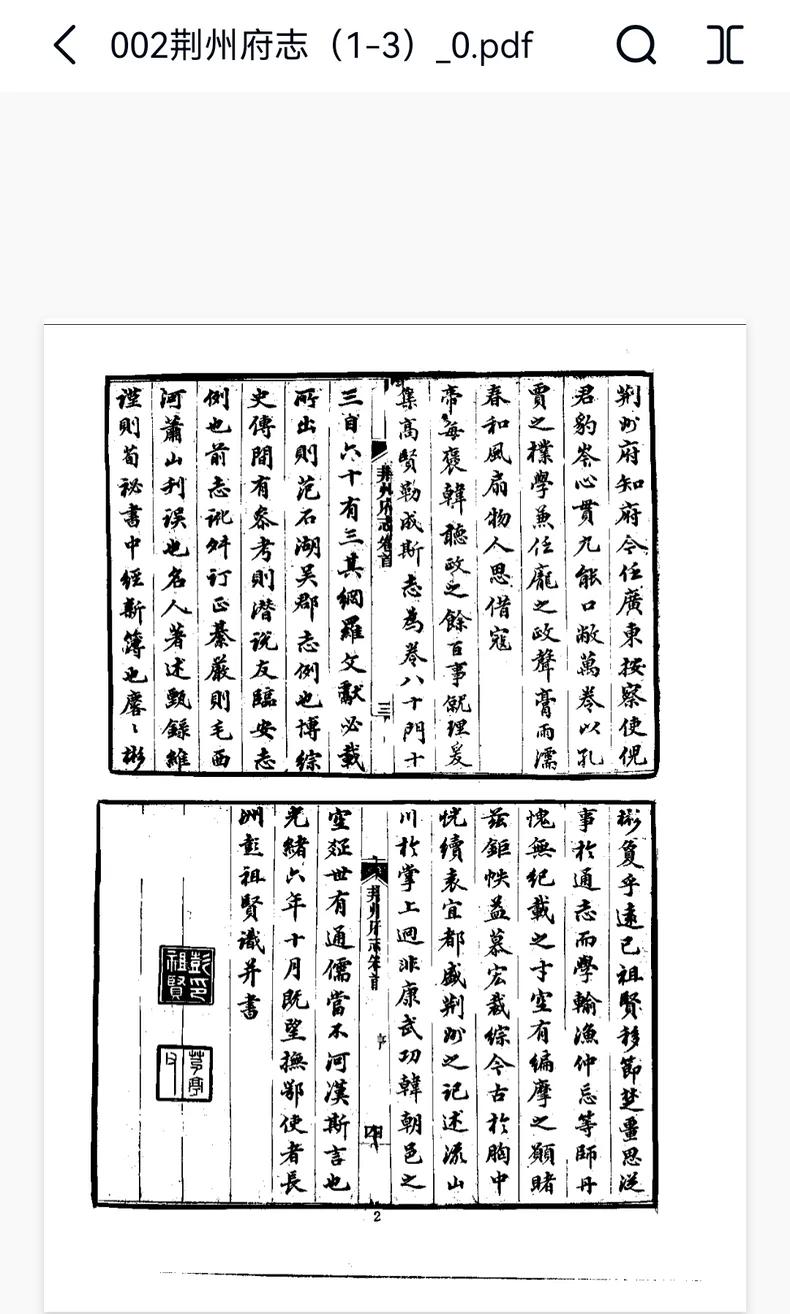 002荆州府志（1-3）_0.pdf
荆州府知府今任廣東按察使倪
君豹岑心貫九能口敝萬卷以孔
賈之樸學兼任龐之政聲膏雨濡
春和風扇物人思借寇
帝每褒韓聽政之餘百事就理爰
集高賢勒成斯志為卷八十門十
荆州府志卷首
三
三目六十有三其綱羅文獻必載
所出則范石湖吳郡志例也博綜
史傳間有叅考則潛說友臨安志
例也前志訛舛訂正綦嚴則毛西
河蕭山刋误也名人著述甄錄維
謹則荀祕書中經新簿也麐〻彬
彬敻乎遠已祖賢移節楚畺思從
事於通志而學輸漁仲忌等師丹
愧無紀載之才空有編摩之願睹
茲鉅帙益慕宏裁綜今古於胸中
恍續袁宜都盛荆州之记述流山
川於掌上迥非康武功韓朝邑之
荆州府志卷首
序
四
空疎世有通儒當不河漢斯言也
光緒六年十月既望撫鄂使者長
洲彭祖賢識并書
彭印祖賢
芍亭
2